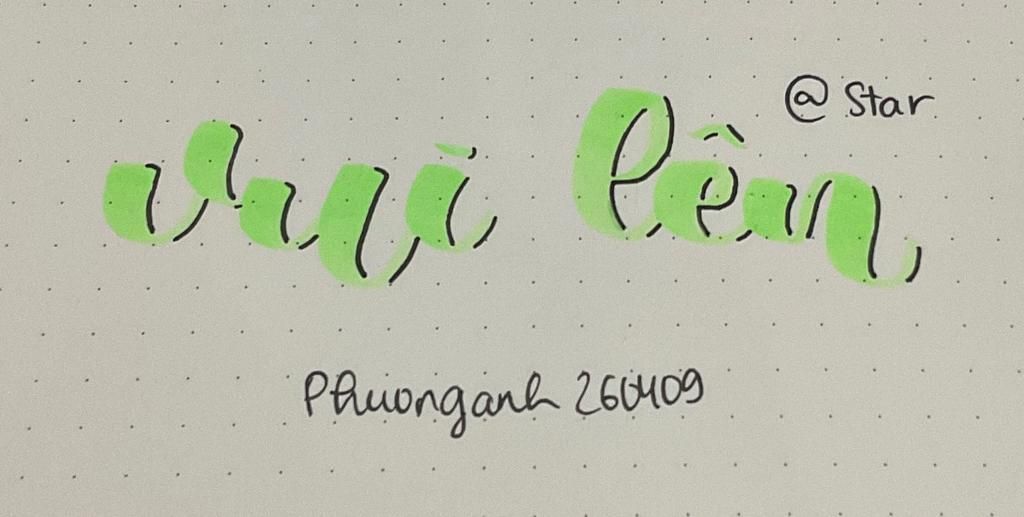 @ Star
vui lên
Phuonganh 260409